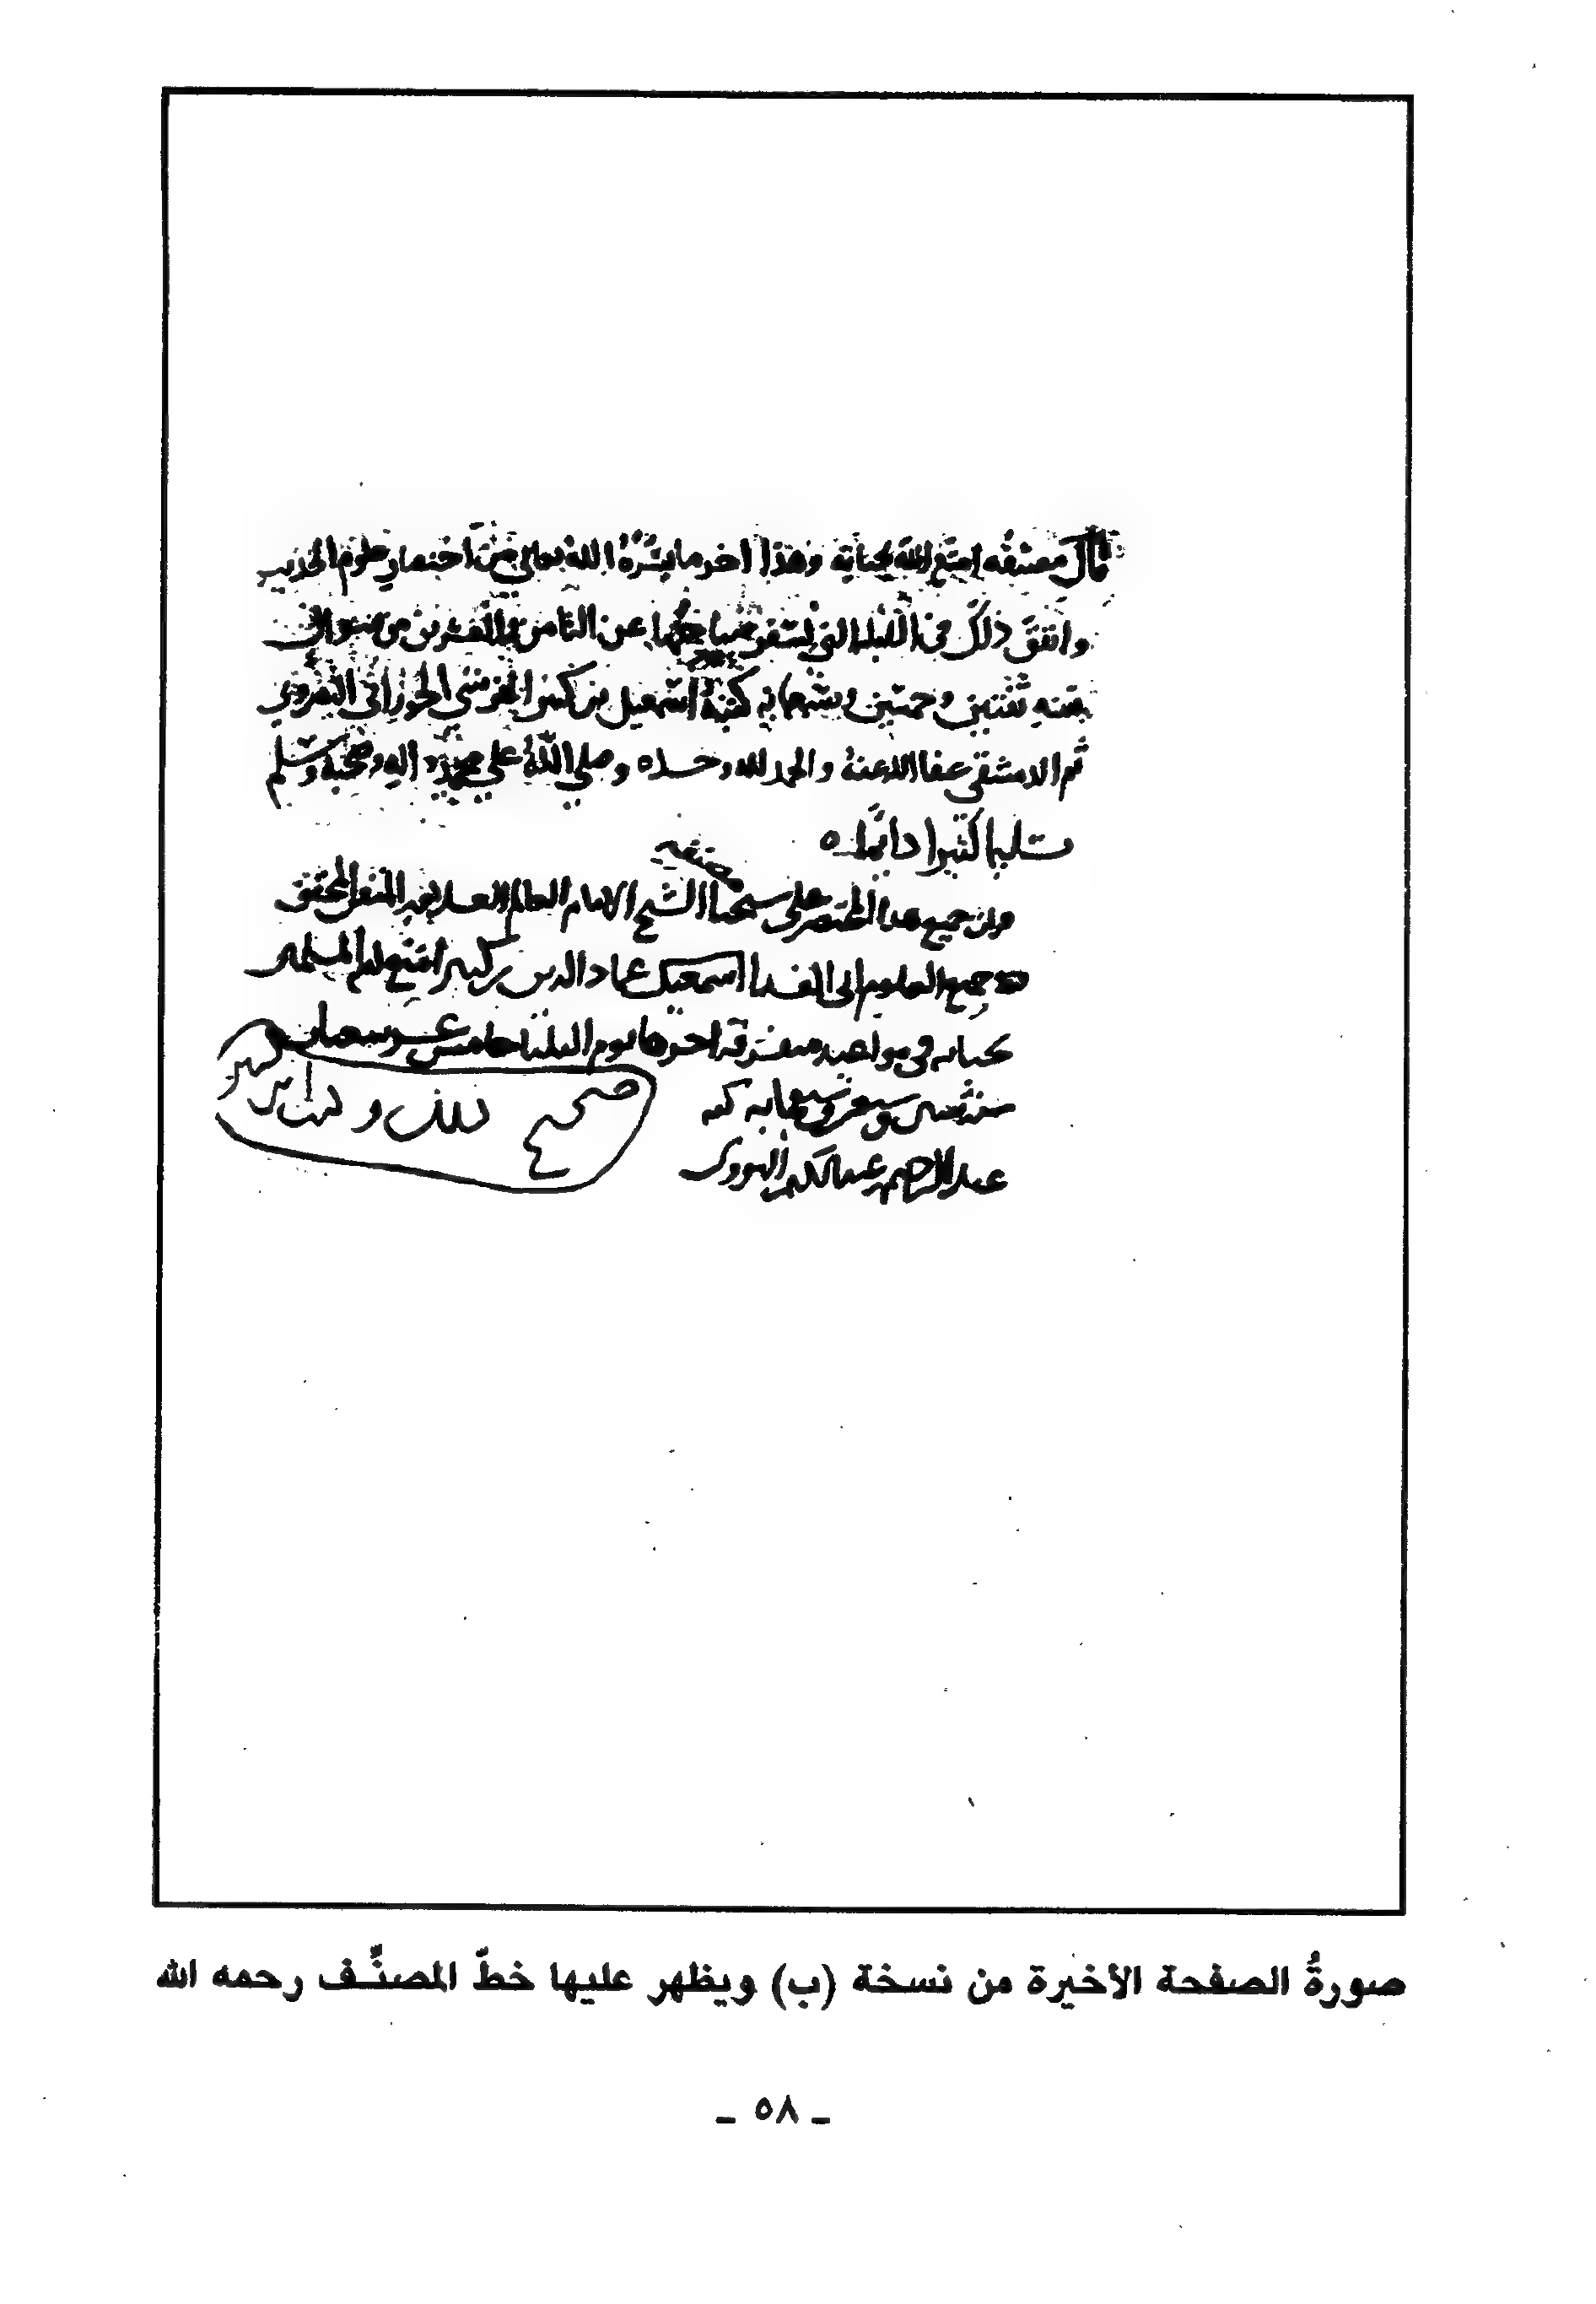 قال مصنفه امتع الله بحياته وهذا اخر ما يسره الله تعالى من اختصار علوم الحديث
واتفق ذلك في الليلة التي يسفر صباحها عن الثامن والعشرين من شوال
سنة ثنتين وخمسين وسبعمايه كتبه اسمعيل بن كثير القرشي البصروي
ثم الدمشقي عفا الله عنه والحمد لله وحده وصلى الله على محمد واله وصحبه وسلم
تسليما كثيرا دايما
جميع هذا المختصر على شيخنا الشيخ الامام العالم المحقق
جميع العلوم ابي الفدا اسمعيل عماد الدين بن كثير امتع الله المسلمين
بحياته في مواعيد متفرقه اخرها يوم الثلثا خامس عشر شعبان
سنة وسبعمايه كتبه
عبد الرحيم
صحيح ذلك وكتب ابن كثير
صورةُ الصفحة الأخيرة من نسخة (ب) ويظهر عليها خطّ المصنِّف رحمه الله
ـ ٥٨ ـ